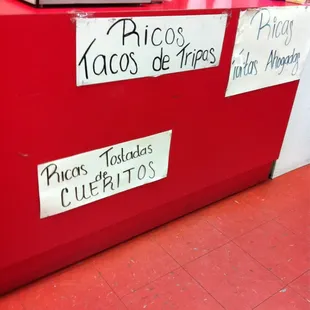 Ricos
Tacos de Tripas
Ricas
Ahogadas
Ricas Tostadas
de
CUERITOS